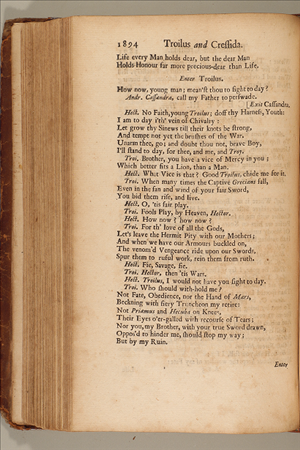 1894 Troilus and Cressida.
Life every Man holds dear, but the dear Man
Holds Honour far more precious-dear than Life.
Enter Troilus.
How now, young man; mean'st thou to fight to day?
Andr. Cassandra, call my Father to perswade.
[Exit Cassandra.
Hect. No Faith, young Troilus; doff thy Harness, Youth:
I am to day i'th' vein of Chivalry:
Let grow thy Sinews till their knots be strong,
And tempt not yet the brushes of the War.
Unarm thee, go; and doubt thou not, brave Boy,
I'll stand to day, for thee, and me, and Troy.
Troi. Brother, you have a vice of Mercy in you;
Which better fits a Lion, than a Man.
Hect. What Vice is that? Good Troilus, chide me for it.
Troi. When many times the Captive Grecians fall,
Even in the fan and wind of your fair Sword,
You bid them rise, and live.
Hect. O, 'tis fair play.
Troi. Fools Play, by Heaven, Hector.
Hect. How now? how now?
Troi. For th' love of all the Gods,
Let's leave the Hermit Pity with our Mothers;
And when we have our Armours buckled on,
The venom'd Vengeance ride upon our Swords,
Spur them to ruful work, rein them from ruth.
Hect. Fie, Savage, fie.
Troi. Hector, then 'tis Wars.
Hect. Troilus, I would not have you fight to day.
Troi. Who should with-hold me?
Not Fate, Obedience, nor the Hand of Mars,
Beckning with fiery Truncheon my retire;
Not Priamus and Hecuba on Knees,
Their Eyes o'er-galled with recourse of Tears;
Nor you, my Brother, with your true Sword drawn,
Oppos'd to hinder me, should stop my way;
But by my Ruin.
Enter